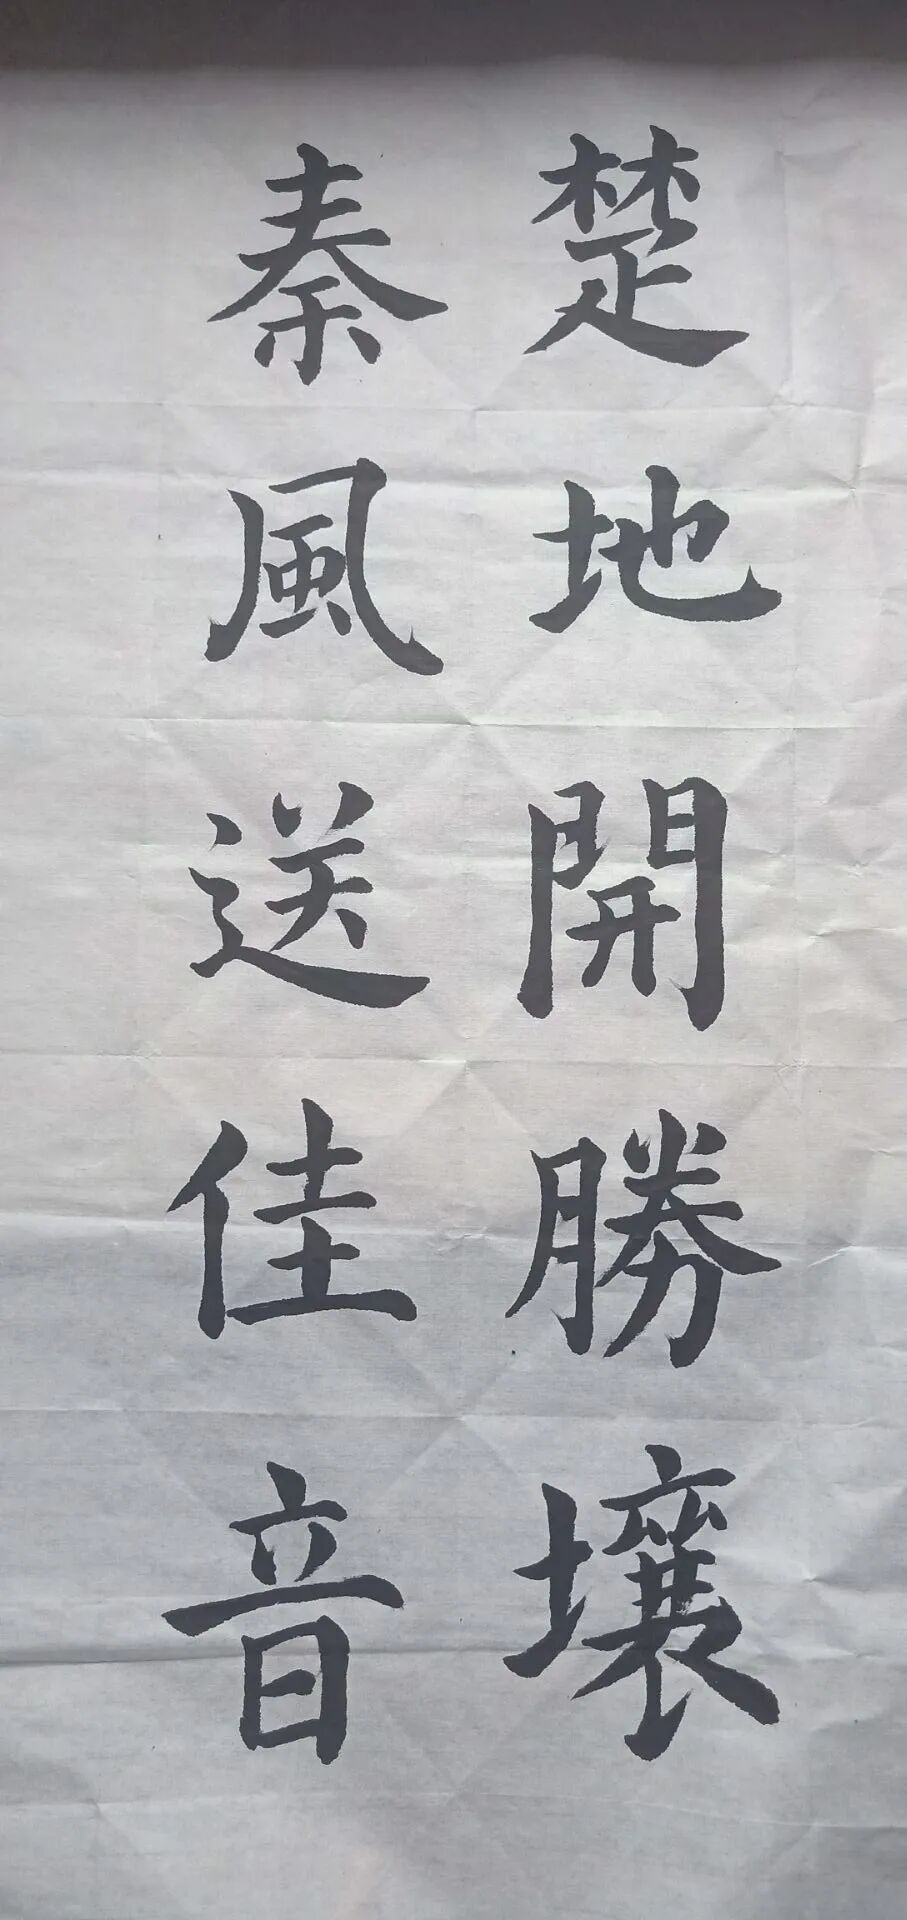 楚地開勝壤
秦風送佳音